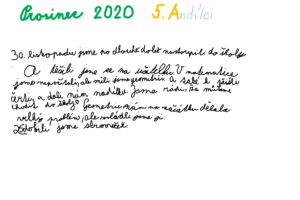 Prosinec 2020 5. Andílci
30. listopadu jsme po dlouhé době nastoupili do školy.
A těšili jsme se na učitelku. V matematice
jsme nepočítali, ale měli jsme geometrii. A také k přišli
čerti, a dali nám nadílku. Jsme rádi, že můžeme
chodit do školy. Geometrie nám na začátku dělala
velký problém, ale zvládli jsme ji.
Zdobili jsme stromeček.